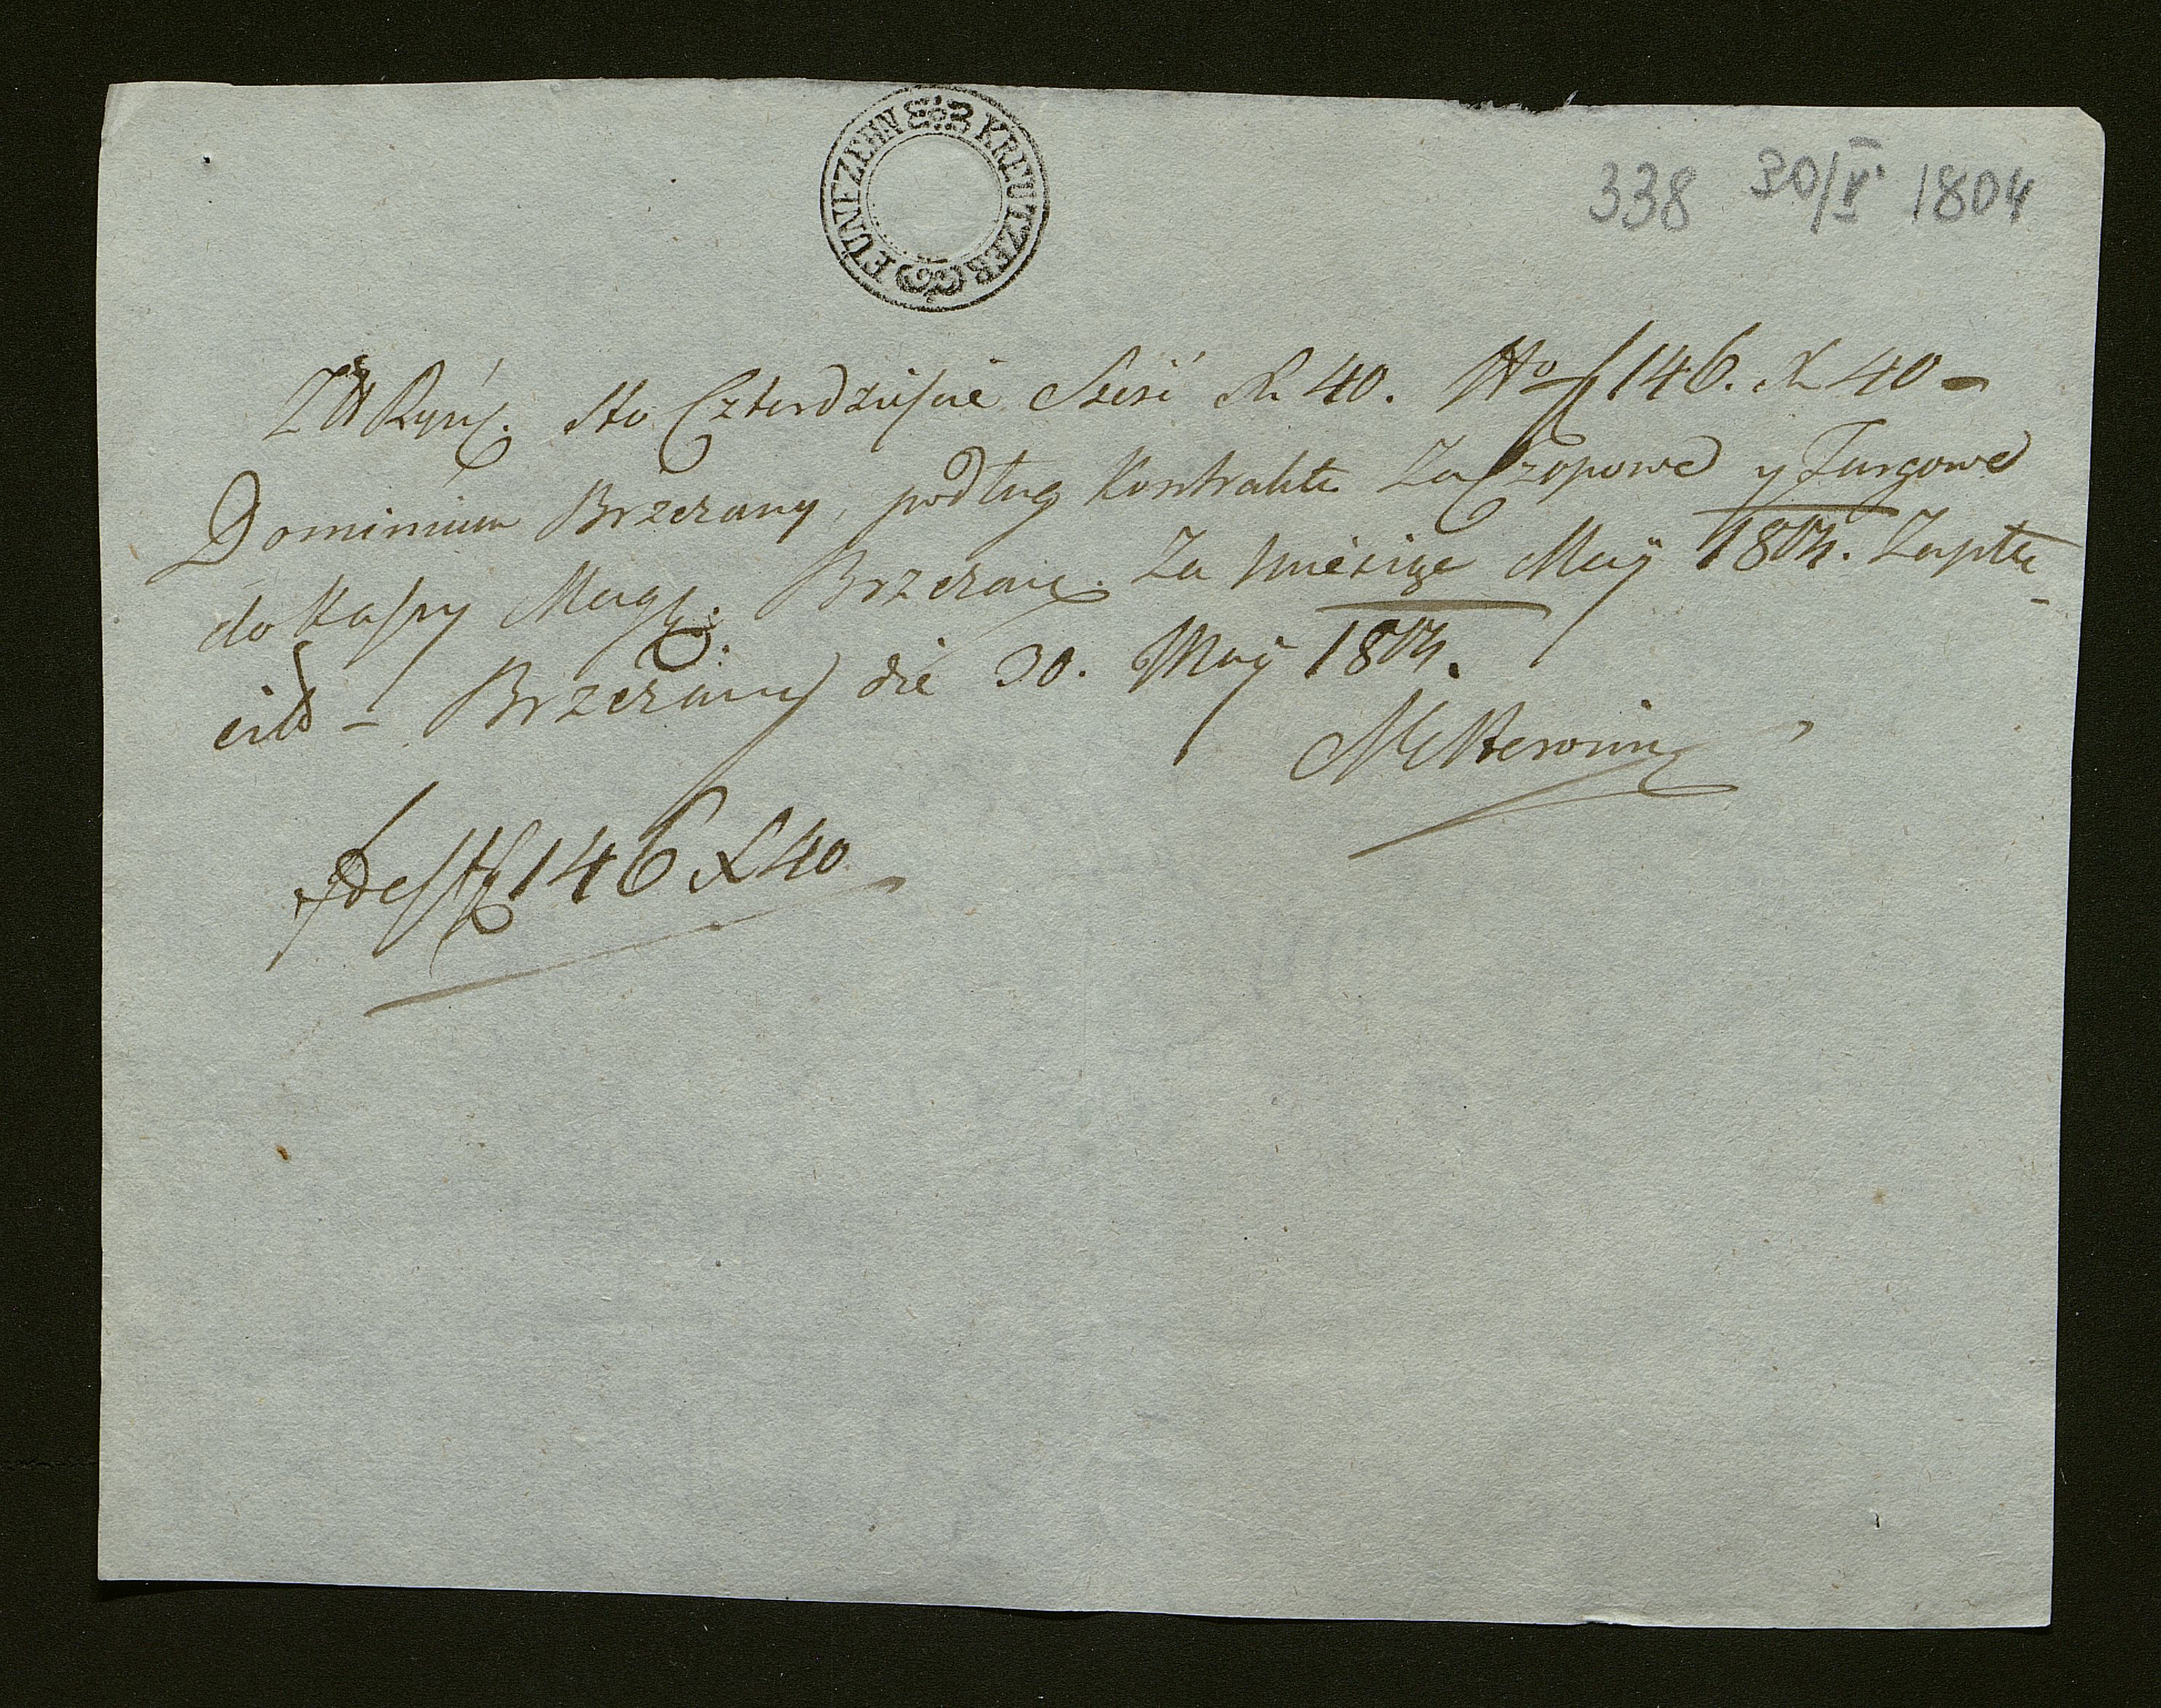 FUNFZEHN KREUTZER
338 30/V 1804
Zł Ryń. Sto Czterdzieście Sześć Xr 40. Nro f 146. X 40 -
Dominium Brzeżany, podług Kontraktu Za Czopowe y Targowe
do Kassy Mag: Brzeżań: Za Miesiąc Maÿ 1804. Zapła-
ciło - Brzeżany die 30. Maÿ 1804.
id est f 146 X 40